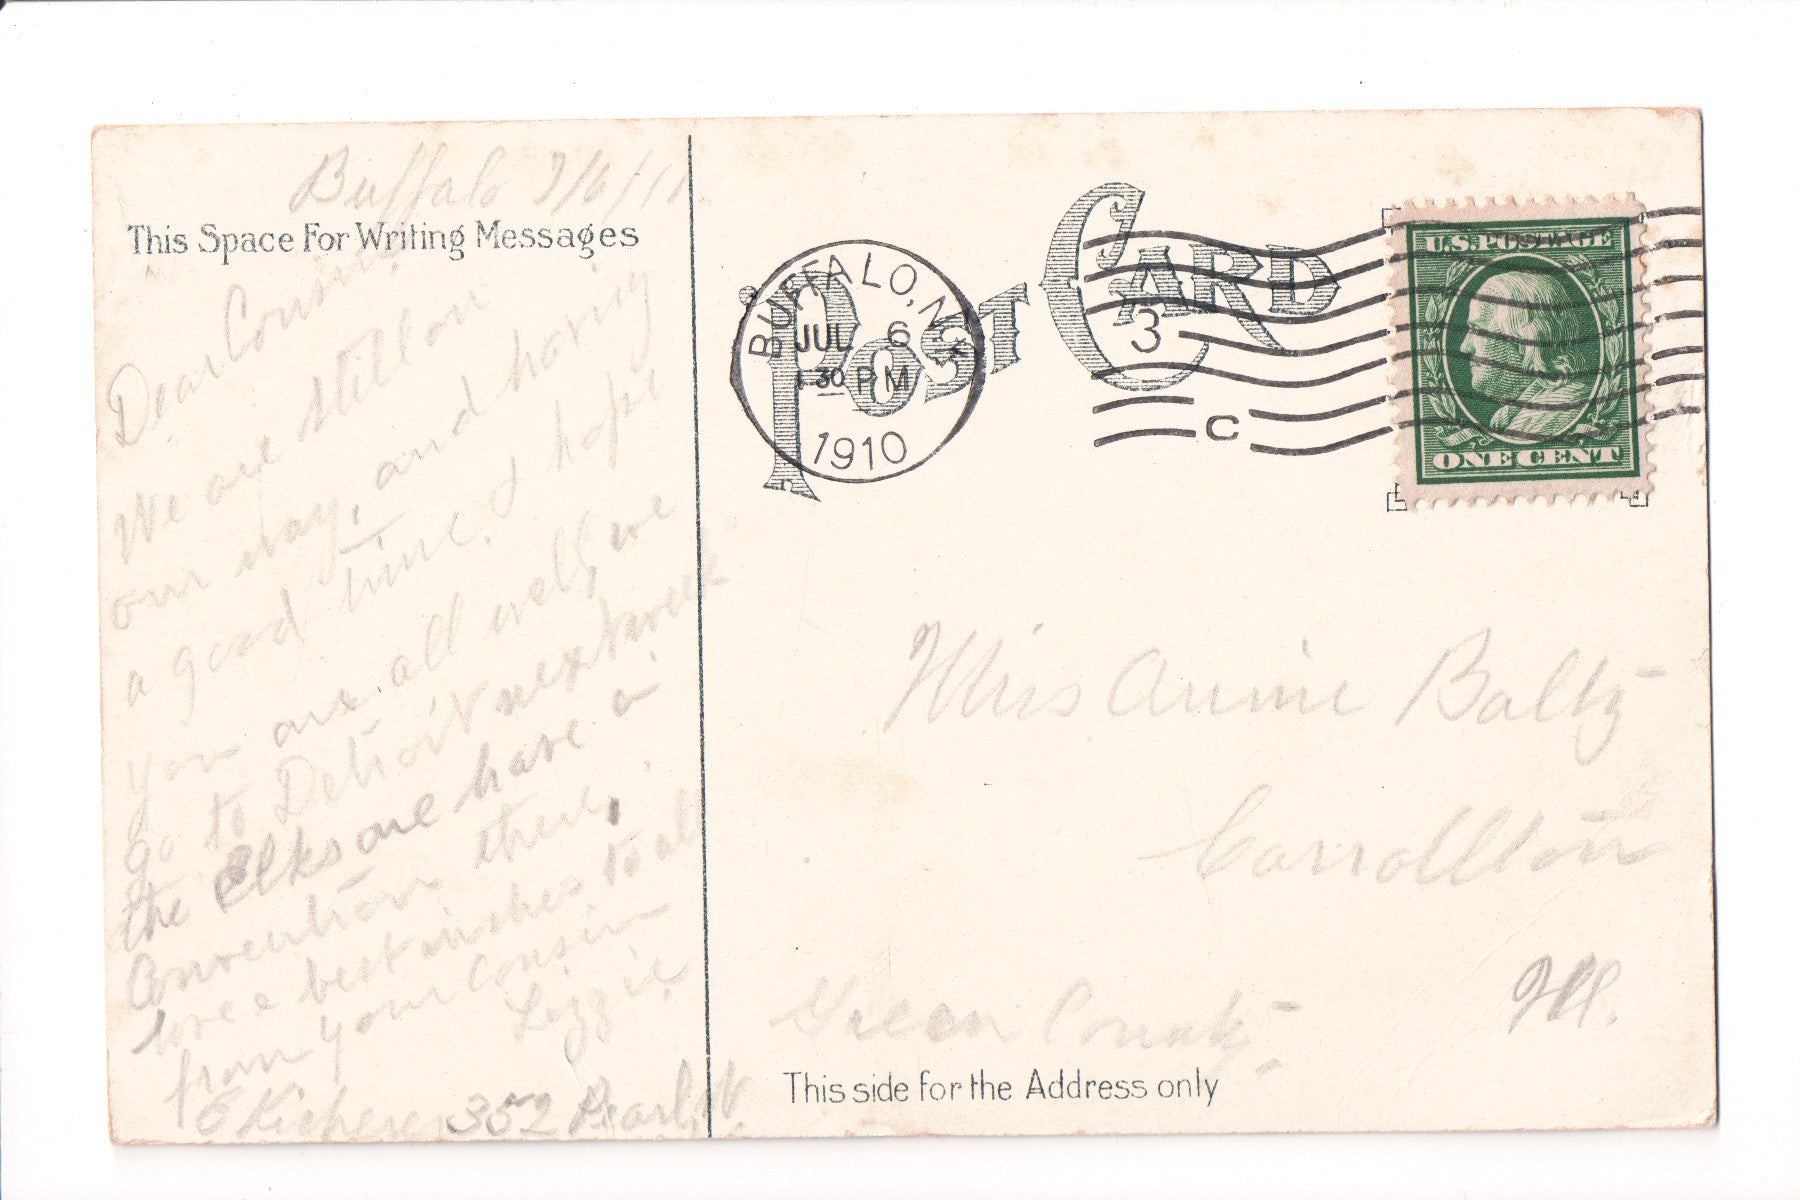 Buffalo 7/6/10
This Space For Writing Messages
Dear Cousin
We are still on
our way, and having
a good time. I hope
you are all well, we
go to Detroit next week
the Elks are have a
Convention there,
love & best wishes to all
from your cousin
Lizzie
352 Pearl St.
POST CARD
BUFFALO, N.Y.
JUL 6
1 30 PM
1910
3
C
U.S. POSTAGE
ONE CENT
Miss Annie Baltz
Carrollton
Green County
Ill.
This side for the Address only